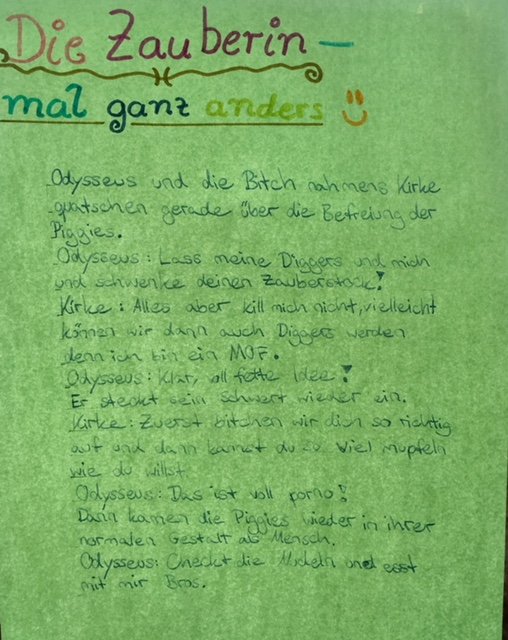 Die Zauberin –
mal ganz anders
Odysseus und die Bitch nahmens Kirke
quatschen gerade über die Befreiung der
Piggies.
Odysseus: Lass meine Diggers und mich
und schwenke deinen Zauberstock!
Kirke: Alles aber kill mich nicht, vielleicht
können wir dann auch Diggers werden
denn ich bin ein MOF.
Odysseus: Klar, voll fette Idee!
Er steckt sein schwert wieder ein.
Kirke: Zuerst bitchen wir dich so richtig
auf und dann kannst du so viel mupfeln
wie du willst.
Odysseus: Das ist voll porno!
Dann kamen die Piggies wieder in ihrer
normalen Gestalt als Mensch.
Odysseus: Checkt die und esst
mit mir Bros.